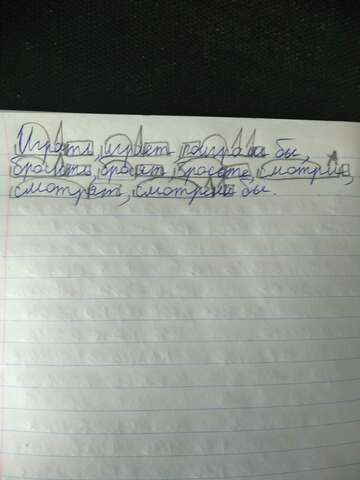 Играть, играет поиграли бы,
бросить, бросят, бросьте, смотри,
смотрят, смотрели бы.